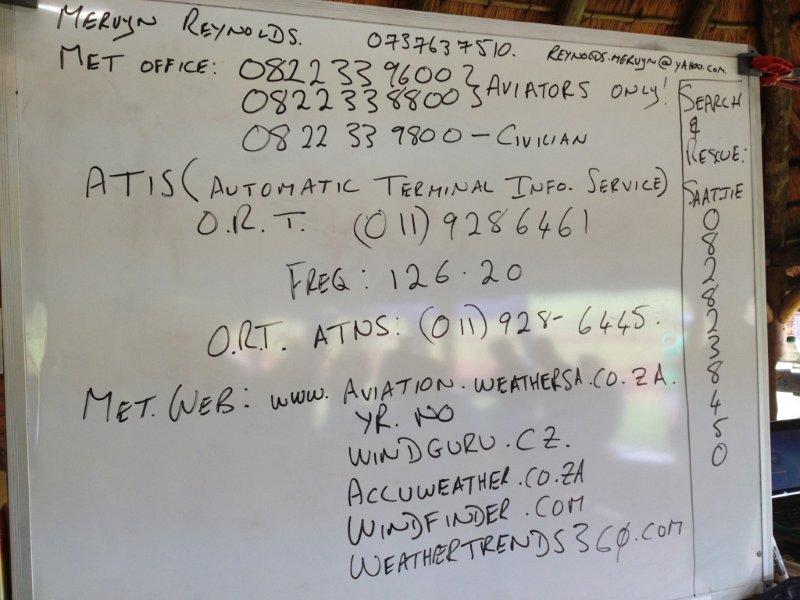 MERVYN REYNOLDS. 0737637510. REYNOLDS.MERVYN@YAHOO.COM.
MET OFFICE: 0822339600 } AVIATORS ONLY!
0822338800
0822339800 - CIVILIAN
ATIS (AUTOMATIC TERMINAL INFO. SERVICE)
O.R.T. (011) 9286461
FREQ: 126.20
O.R.T. ATNS: (011) 928-6445.
MET. WEB: WWW. AVIATION.WEATHERSA.CO.ZA.
YR. NO
WINDGURU.CZ.
ACCUWEATHER.CO.ZA
WINDFINDER.COM
WEATHERTRENDS360.COM
SEARCH
&
RESCUE:
SAATJIE
0
8
2
8
2
3
8
4
5
0